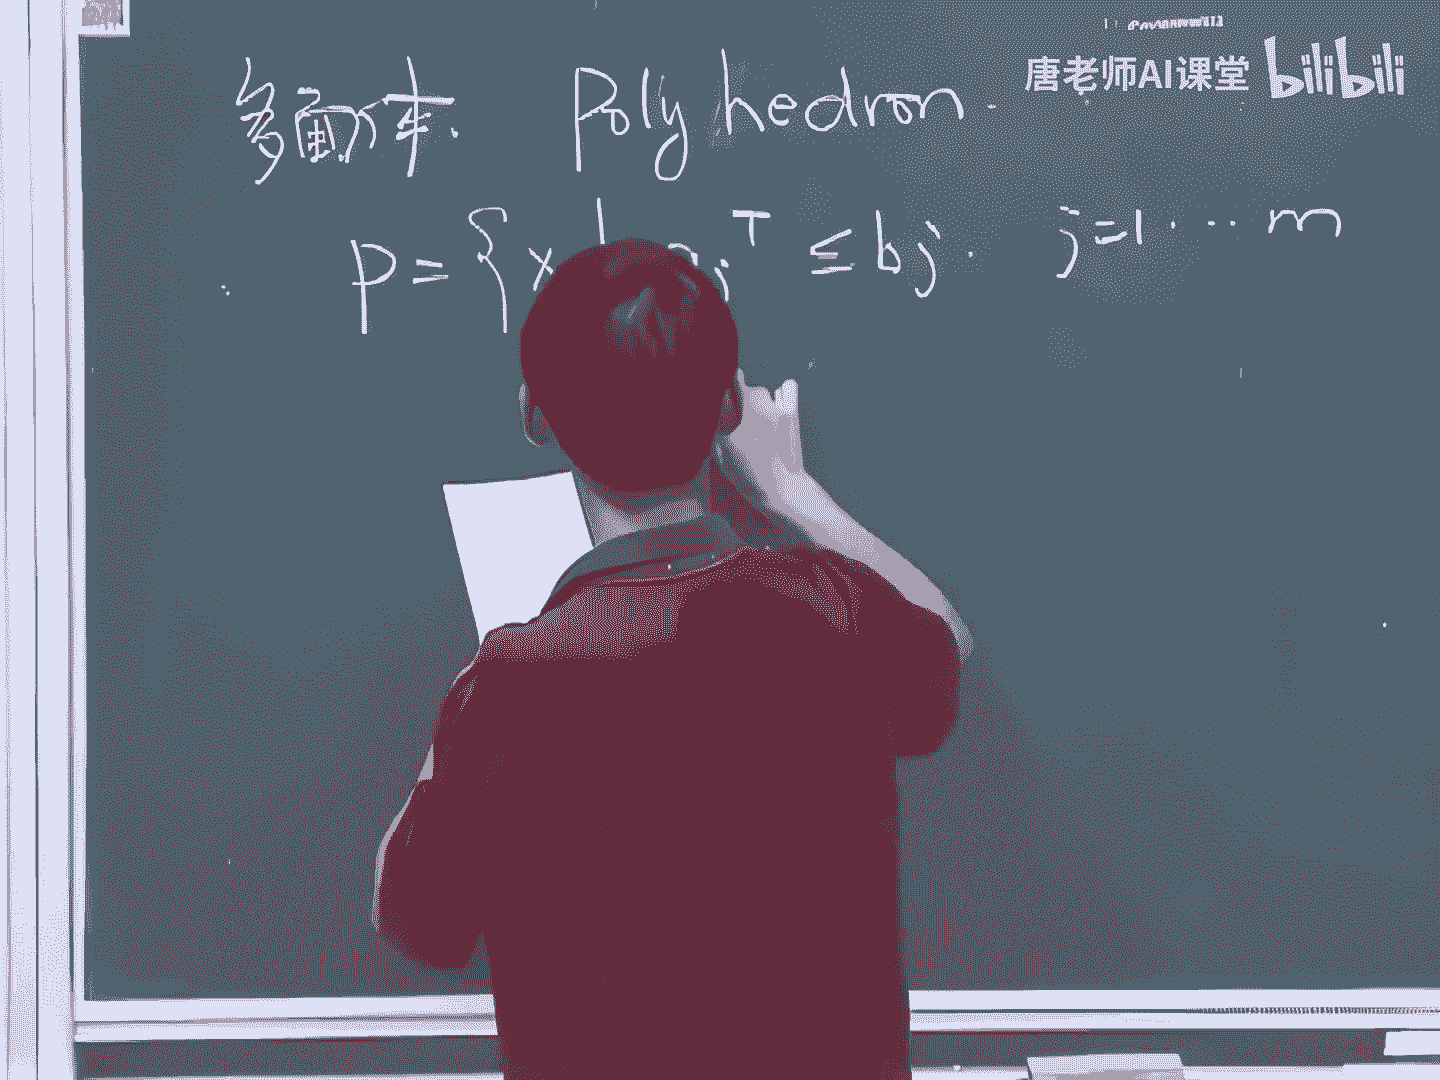 唐老师AI课堂 bilibili
多面体. Polyhedron.
P = { x | aj T ≤ bj. j=1 ... m